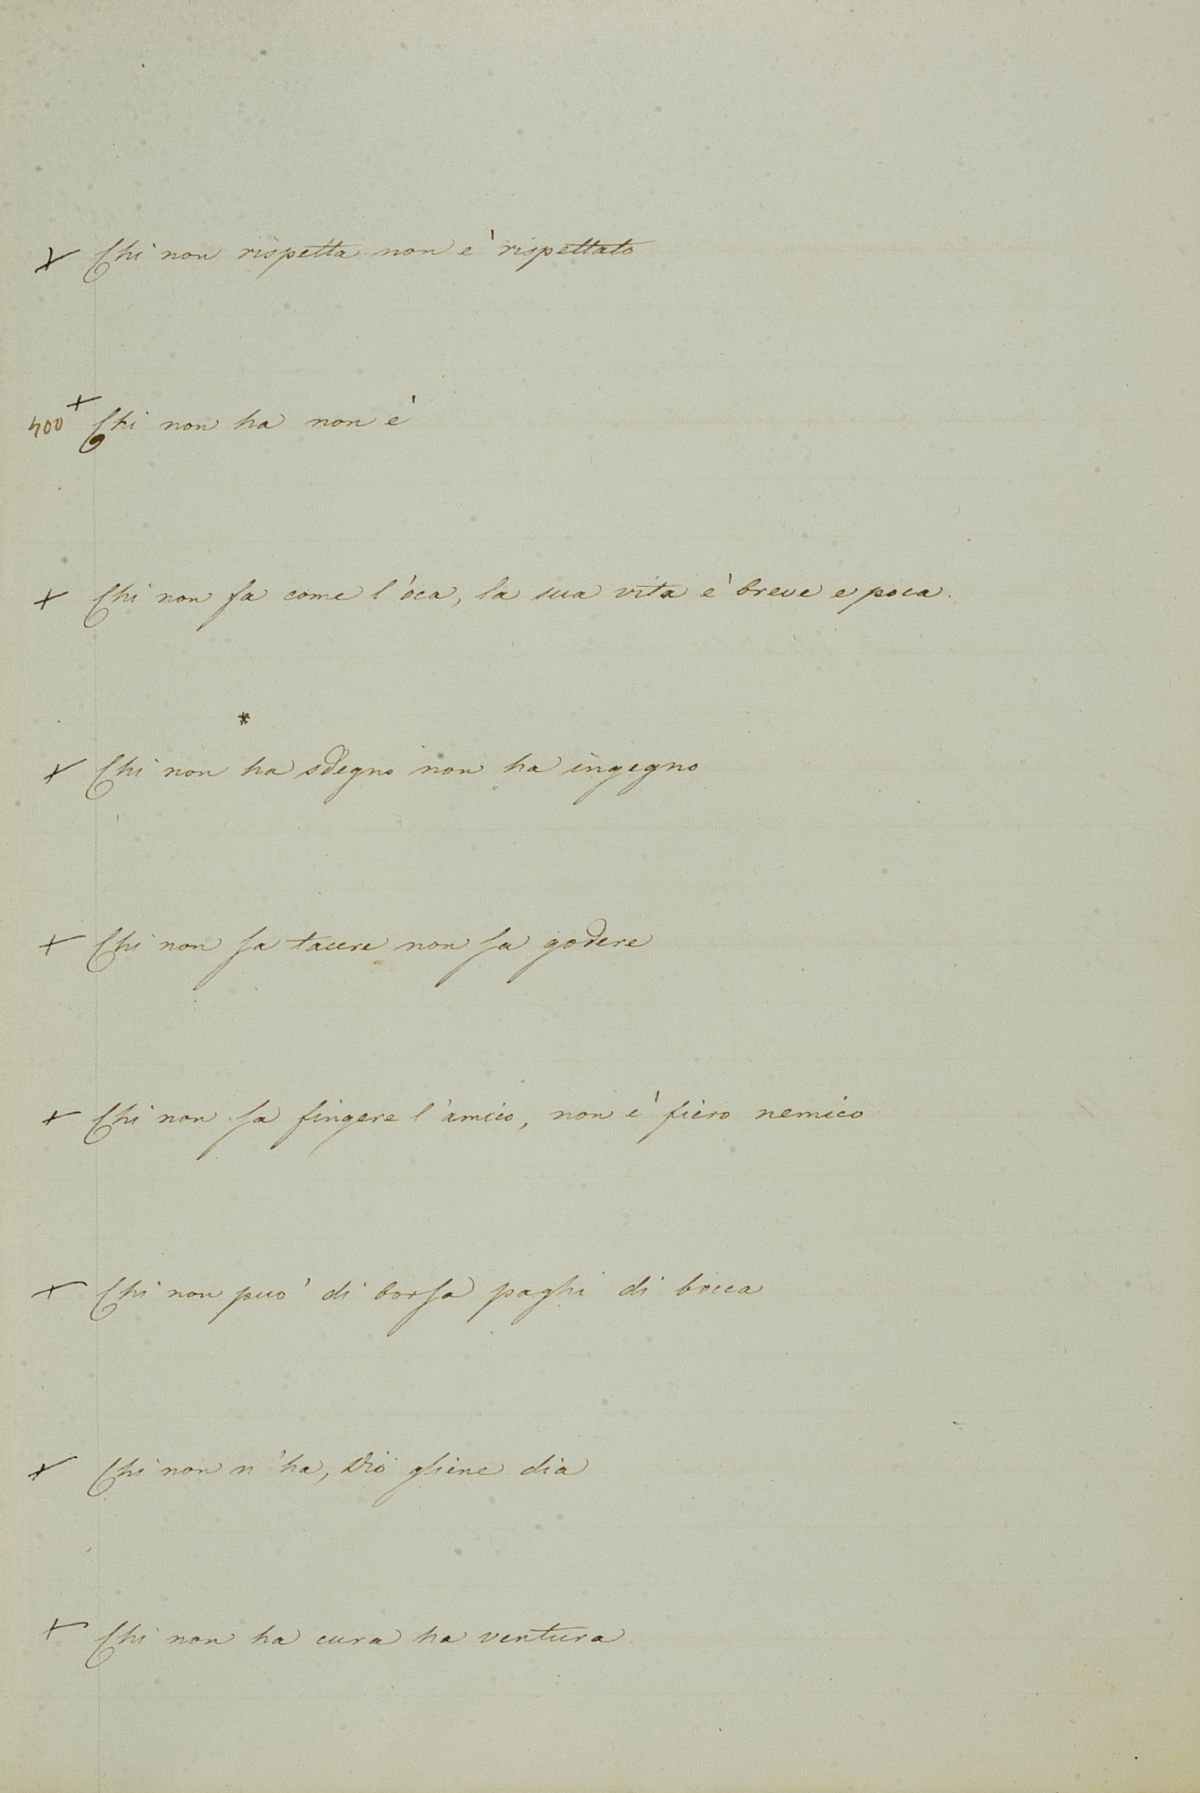 + Chi non rispetta non e' rispettato
400 + Chi non ha non e'
+ Chi non fa come l'oca, la sua vita e' breve e poca.
*
+ Chi non ha sdegno non ha ingegno
+ Chi non sa tacere non sa godere
+ Chi non sa fingere l'amico, non e' fiero nemico
+ Chi non puo' di borsa paghi di bocca
+ Chi non n'ha, Dio gliene dia
+ Chi non ha cura ha ventura.